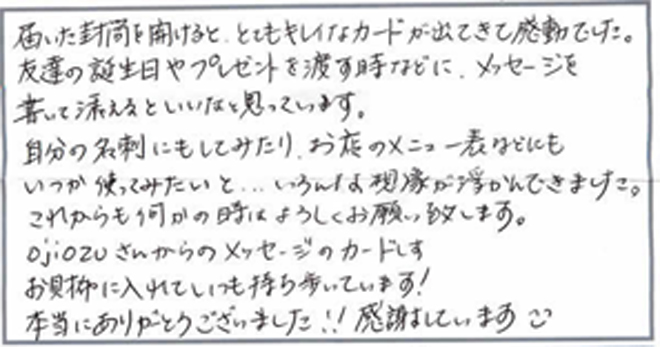 届いた封筒を開けると、とてもキレイなカードが出てきて感動でした。
友達の誕生日やプレゼントを渡す時などに、メッセージを
書いて添えるといいなと思っています。
自分の名刺にもしてみたり、お店のメニュー表などにも
いつか使ってみたいと...いろんな想像が浮かんできました。
これからも何かの時はよろしくお願い致します。
ojiozuさんからのメッセージのカードも
お財布に入れていつも持ち歩いています!
本当にありがとうございました!!感謝しています